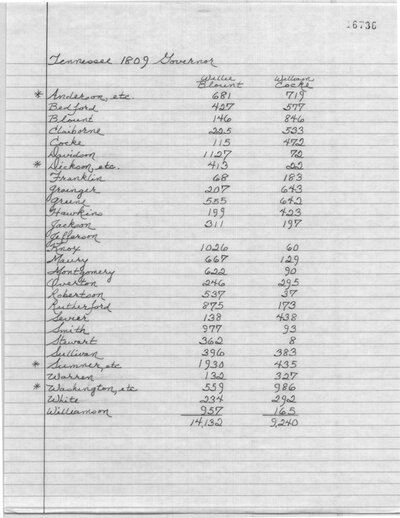 16736
Tennessee 1809 Governor
Willie William
Blount Cocke
* Anderson, etc. 681 719
Bedford 427 577
Blount 146 846
Claiborne 225 533
Cocke 115 472
Davidson 1127 72
* Dickson, etc. 413 22
Franklin 68 183
Grainger 207 643
Greene 555 642
Hawkins 199 423
Jackson 311 197
Jefferson
Knox 1026 60
Maury 667 129
Montgomery 622 90
Overton 246 295
Robertson 537 37
Rutherford 875 173
Sevier 138 438
Smith 977 93
Stewart 362 8
Sullivan 396 383
* Sumner, etc 1930 435
Warren 132 327
* Washington, etc 559 986
White 234 292
Williamson 957 165
14,132 9,240